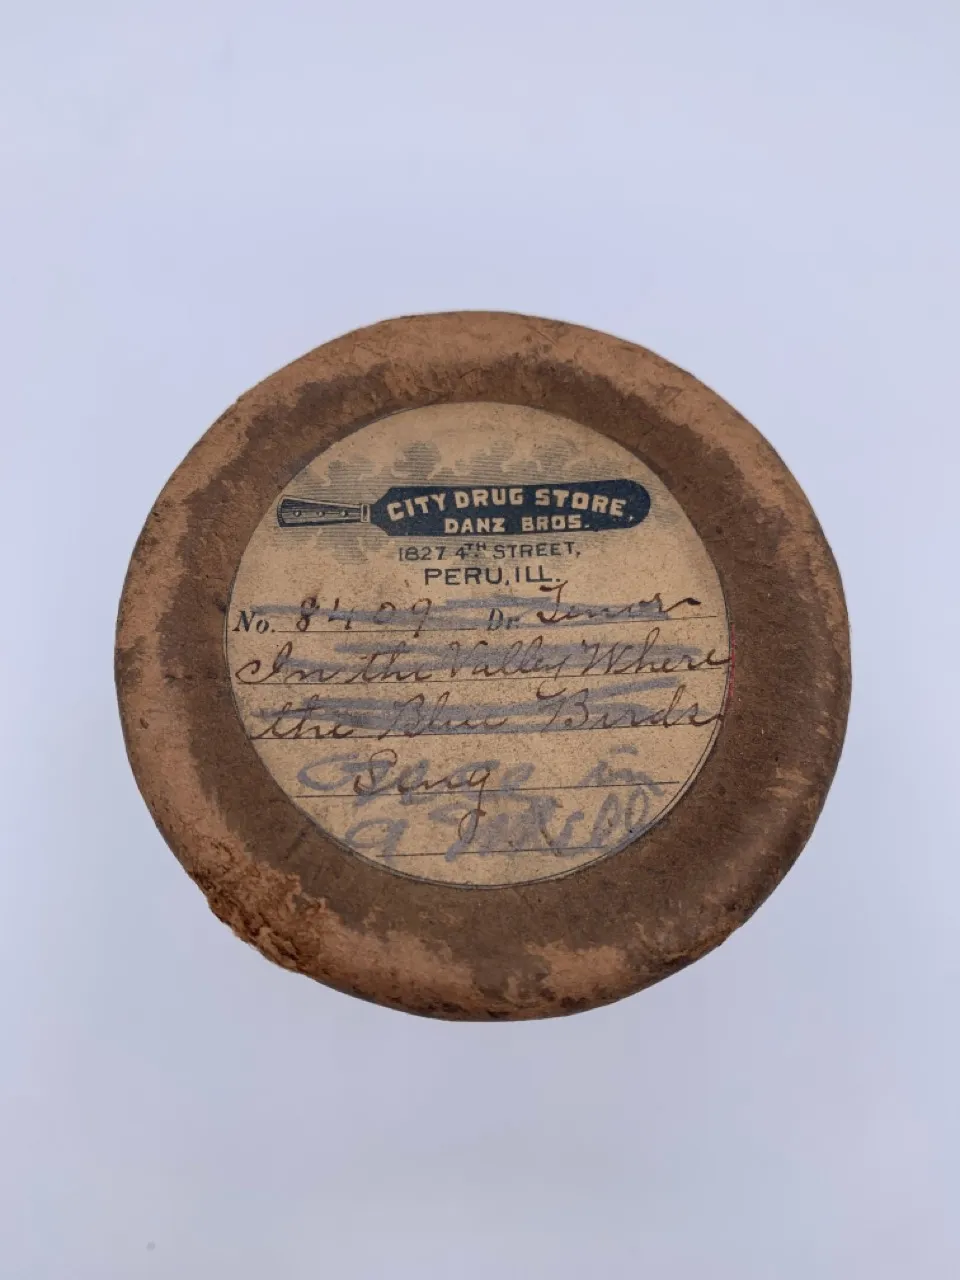 CITY DRUG STORE,
DANZ BROS.
1827 4TH STREET,
PERU, ILL.
No. 8409 Dr. Tenor
In the Valley Where
the Blue Birds
Sing
George in
a